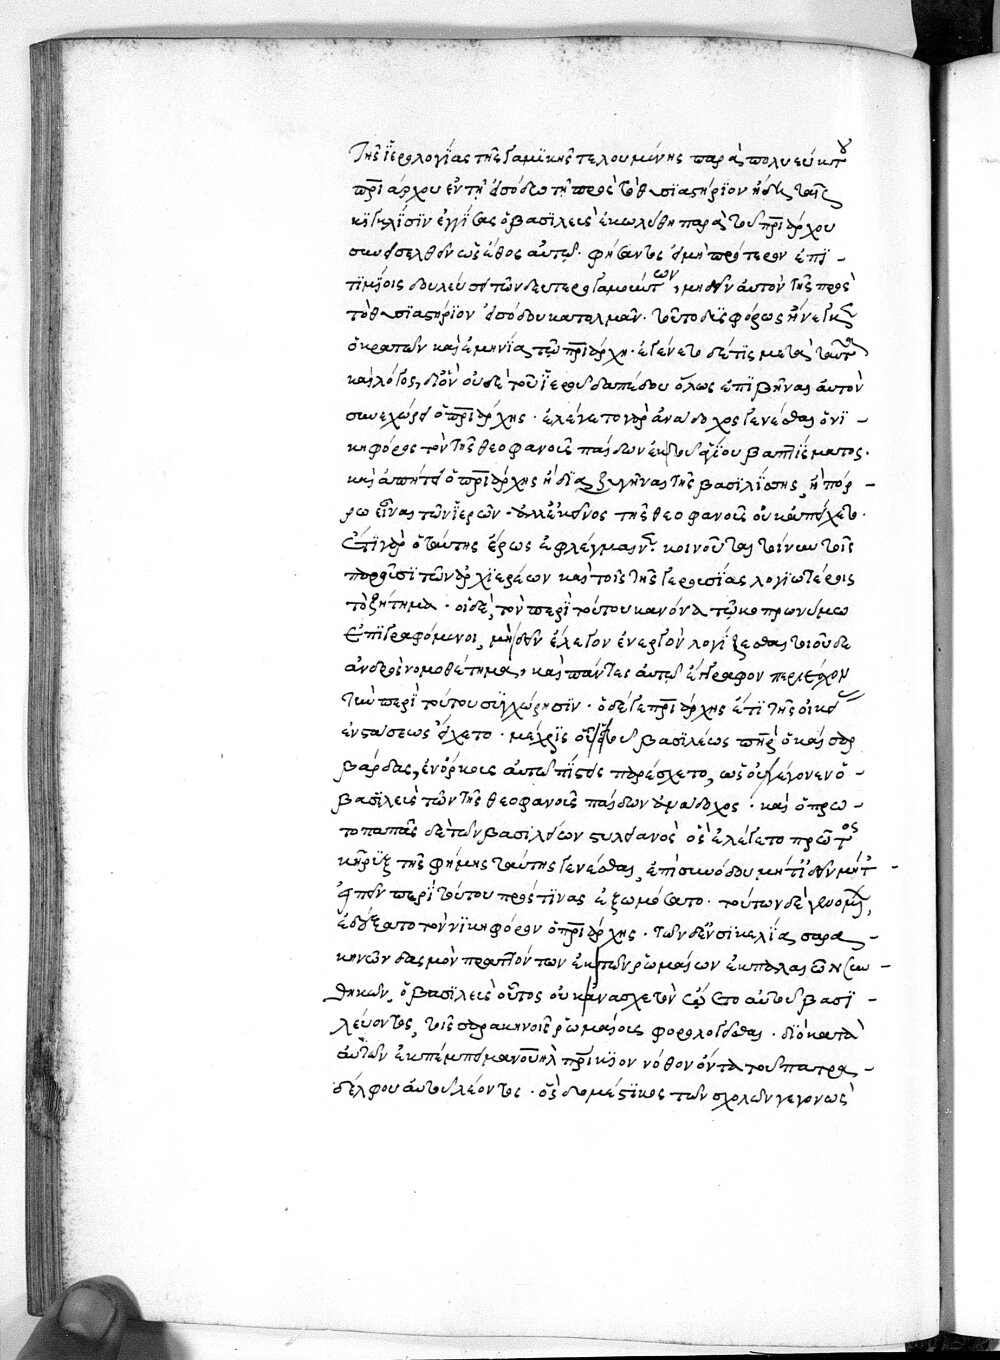 Τῆς ἱερολογίας τῆς γαμικῆς τελουμένης παρὰ πολυεύκτου
πριάρχου ἐν τῆ εἰσόδω τῆ πρὸς τὸ θυσιαστήριον ἤδη ταῖς
κιγκλίσιν ἐγγίσας ὁ βασιλεὺς ἐκωλύθη παρὰ τοῦ πριάρχου
συνεισελθεῖν ὡς ἔθος αὐτῶ. φήσαντος εἰ μὴ πρότερον ἐπι-
τιμίοις δουλεύσει τῶν δευτερογαμούντων, μὴ δεῖν αὐτὸν τῆς πρὸς
τὸ θυσιαστήριον εἰσόδου κατατολμᾶν. τοῦτο δυσφόρως ἤνεγκεν
ὁ κρατῶν καὶ ἐμηνία τῶ πριάρχη. ἐγένετο δέ τις μετὰ ταῦτα
καὶ λόγος, δι' ὃν οὐδὲ τοῦ ἱεροῦ δαπέδου ὅλως ἐπιβῆναι αὐτὸν
συνεχώρει ὁ πριάρχης. ἐλέγετο γὰρ ἀνάδοχος γενέσθαι ὁ νι-
κηφόρος τῶν τῆς θεοφανοῦς παίδων ἐκ τοῦ ἁγίου βαπτίσματος.
καὶ ἀπήτει ὁ πριάρχης ἢ διαζυγῆναι τῆς βασιλίσσης, ἢ πόρ-
ρω εἶναι τῶν ἱερῶν. ἀλλ' ἐκεῖνος τῆς θεοφανοῦς οὐκ ἀπείχετο.
ἔτι γὰρ ὁ ταύτης ἔρως ἐφλέγμαινε. κοινοῦται γοῦν τοῖς
παροῦσι τῶν ἀρχιερέων καὶ τοῖς τῆς γερουσίας λογιωτέροις
τὸ ζήτημα. οἱ δὲ, τὸν περὶ τούτου κανόνα τῶ κοπρωνύμω
ἐπιγραφόμενοι, μὴ δεῖν ἔλεγον ἐνεργὸν λογίζεσθαι τοιοῦδε
ἀνδρὸς νομοθέτημα, καὶ πάντες αὐτῶ ἔγραφον περιέχον
τὴν περὶ τούτου συγχώρησιν. ὁ δέ γε πριάρχης ἔτι τῆς οἰκείας
ἐνστάσεως εἴχετο. μέχρις οὗ τοῦ βασιλέως πηρ ὁ καίσαρ
βάρδας, ἐνόρκοις αὐτῶ πίστεις παρέσχετο, ὡς οὐ γέγονεν ὁ
βασιλεὺς τῶν τῆς θεοφανοῦς παίδων ἀνάδοχος. καὶ ὁ πρω-
τοπαπᾶς δὲ τῶν βασιλείων στυλιανὸς ὃς ἐλέγετο πρῶτος
κήρυξ τῆς φήμης ταύτης γενέσθαι, ἐπὶ συνόδου μήτ' ἰδεῖν μήτ' -
εἰπεῖν περὶ τούτου πρός τινας ἐξωμόσατο. τούτων δὲ γενομένων,
ἐδέξατο τὸν νικηφόρον ὁ πριάρχης. τῶν δ' ἐν σικελία σαρα-
κηνῶν δασμὸν πραττόντων ἐκ τῶν ῥωμαίων ἐκ παλαιῶν συν-
θηκῶν, ὁ βασιλεὺς οὗτος οὐκ ἀνασχετὸν ᾤετο αὐτοῦ βασι-
λεύοντος, τοῖς σαρακηνοῖς ῥωμαίους φορολογεῖσθαι. διὸ κατὰ
αὐτῶν ἐκπέμπει μανουὴλ πρίκιον νόθον ὄντα τοῦ πατρα-
δέλφου αὐτοῦ λέοντος. ὃς δομέστικος τῶν σχολῶν γεγονὼς